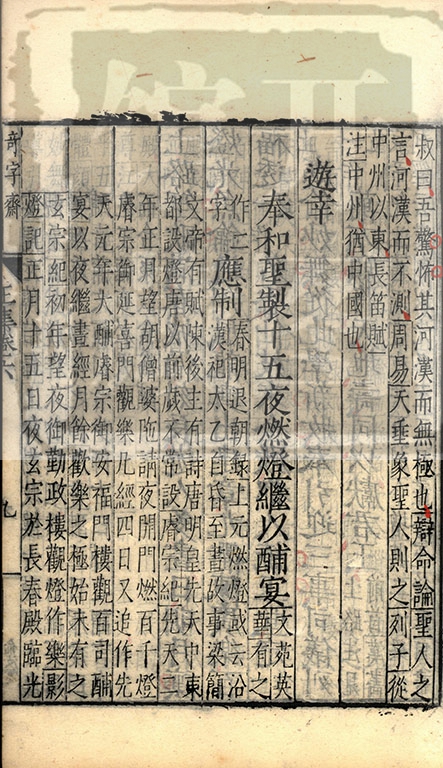 叔曰吾驚怖其河漢而無極也辯命論聖人之
言河漢而不測周易天垂象聖人則之列子從
中州以東長笛賦
注中州猶中國也
遊幸
奉和聖製十五夜燃燈繼以酺宴文苑英
華有之
作二
字應制春明退朝録上元燃燈或云沿
漢祀太乙自昏至晝故事梁簡
文帝有賦陳後主有詩唐明皇先天中東
都設燈唐以前歲不常設睿宗紀先天二
年正月望胡僧婆陁請夜開門燃百千燈
睿宗御延喜門觀樂凡經四日又追作先
天元年大酺睿宗御安福門樓觀百司酺
宴以夜繼晝經月餘歡樂之極始未有之
玄宗紀初年望夜御勤政樓觀燈作樂影
燈記正月十五日夜玄宗於長春殿臨光
奇字齋
正集卷六
九